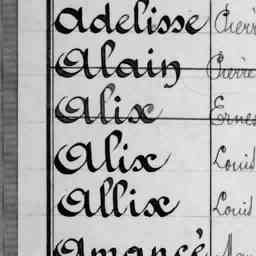 Adelisse Pierr
Alain Pierre
Alix Ernes
Alix Louis
Allix Louis
Amancé